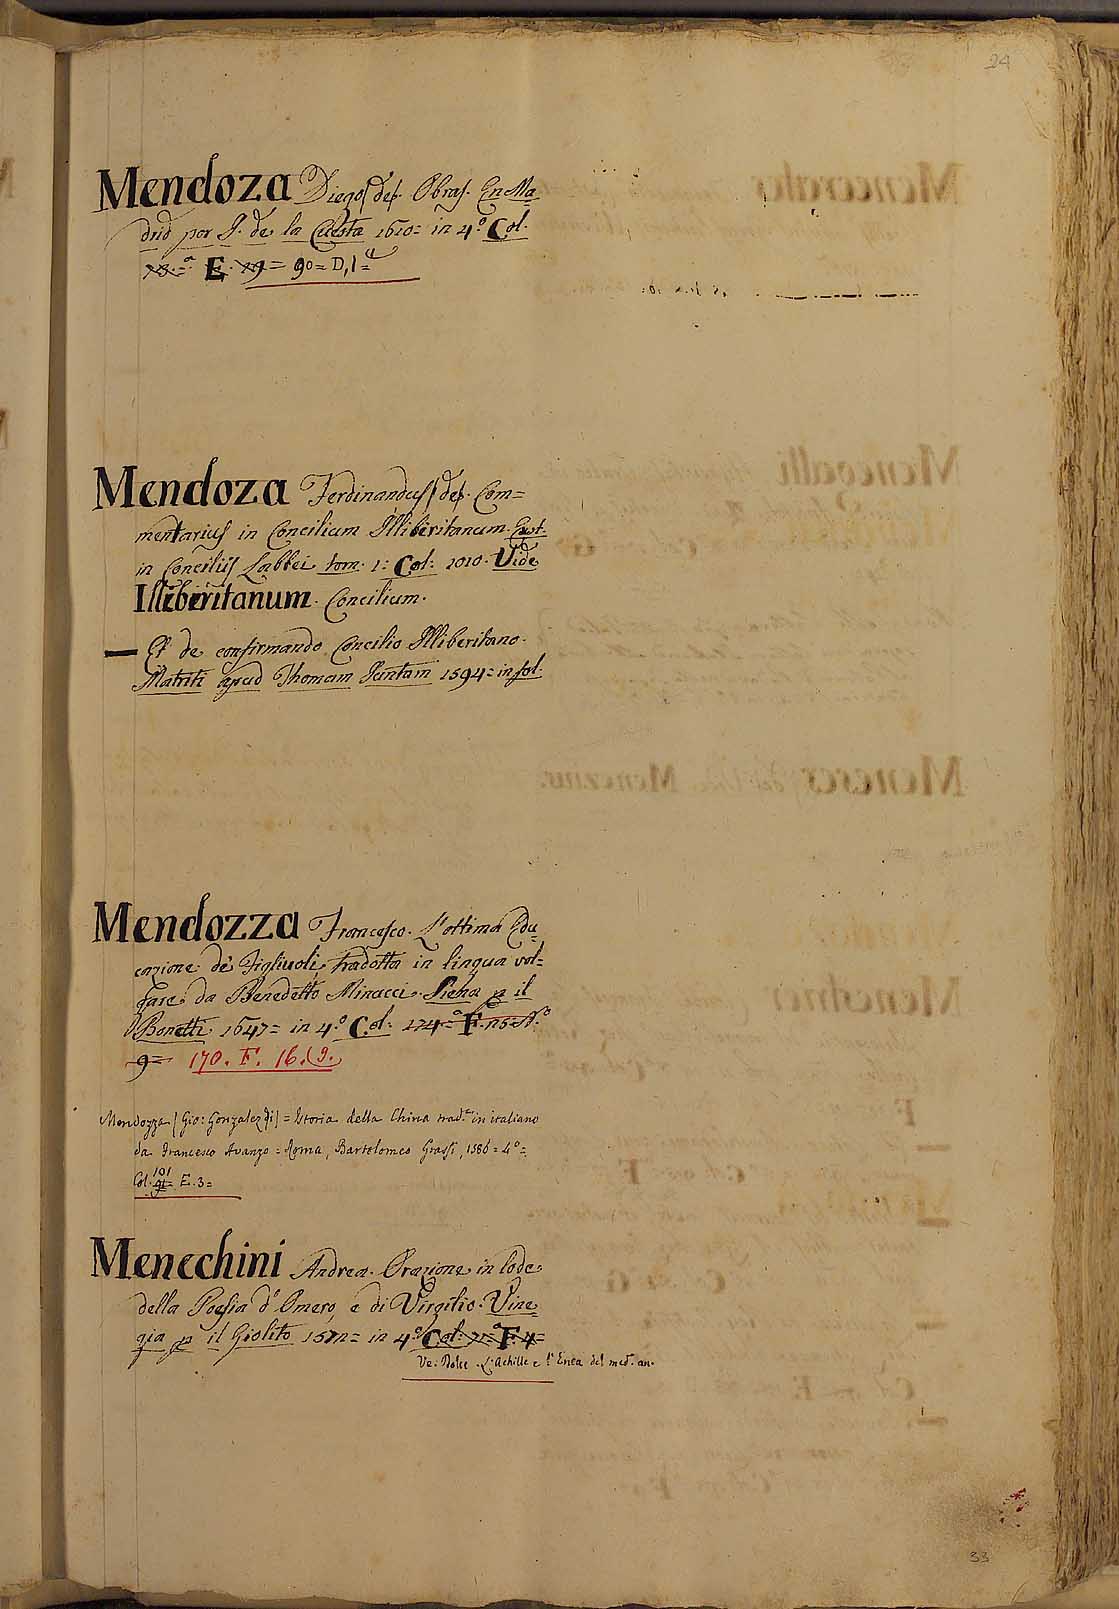 24
Mendoza Diego | de |. Obras. En Ma
drid por J. de la Cuesta 1610= in 4.° Col.
73.=ª E. 19= 90= D, 1=
Mendoza Ferdinandus | de |. Com=
mentarius in Concilium Illiberitanum. Exst.
in Conciliis Labbei tom. 1: Col: 1010. Vide
Illiberitanum. Concilium.
— Et de confirmando Concilio Illiberitano.
Matriti apud Thomam Juntam 1594= in fol.
Mendozza Francesco. L'ottima Edu
cazione de' Figliuoli, tradotta in lingua vol=
gare da Benedetto Minacci. Siena p il
Bonetti 1647= in 4.° Col: 174=ª F.
9= 170. F. 16. 9.
Mendozza (Gio: Gonzalez di) = Istoria della China trad.ª in italiano
da Francesco Avanzo = Roma, Bartolomeo Grassi, 1586 = 4° =
Col. 101 91 = E. 3 =
Menechini Andrea. Orazione in lode
della Poesia d'Omero, e di Virgilio. Vine
gia p il Giolito 1572= in 4.° Col: 71=ª F. 4=
Ve: Dolce. L'Achille e l'Enea del med. an.
33